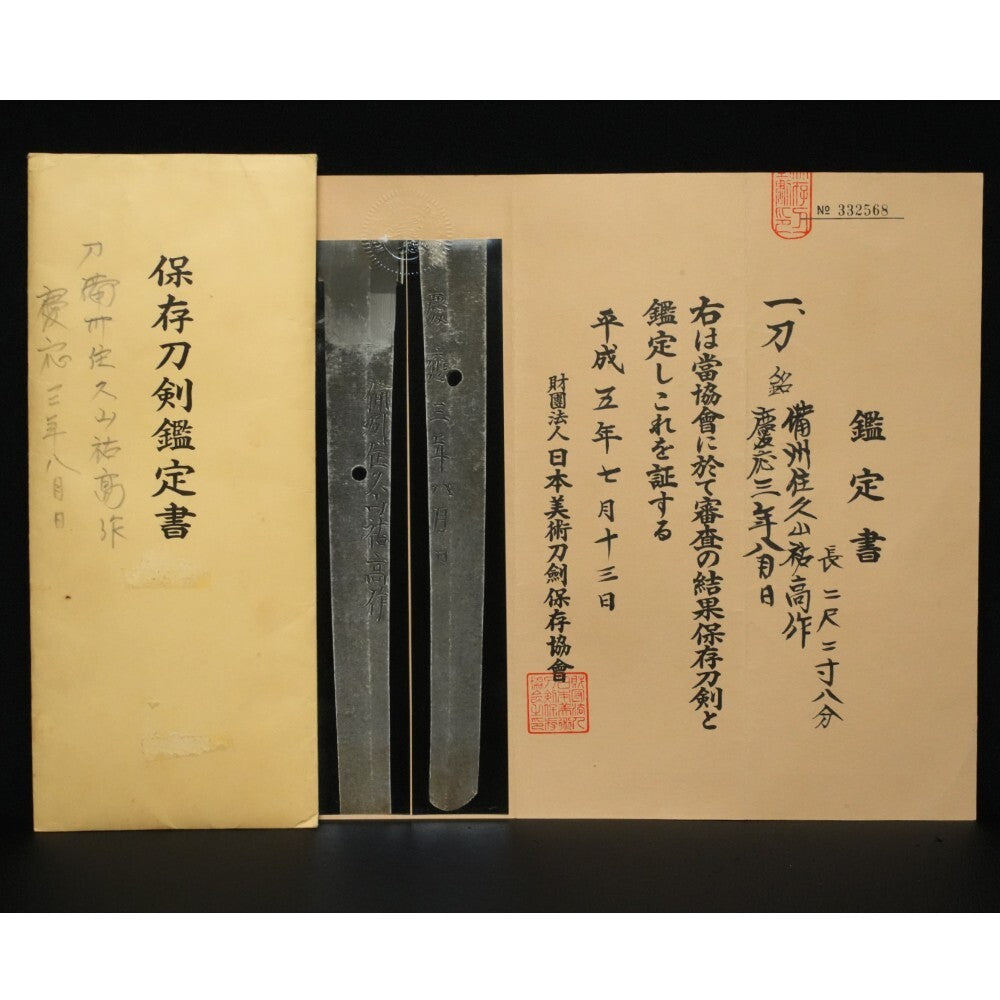 № 332568
鑑定書
一、刀 銘 備州住久山祐高作
慶応三年八月日
長 二尺二寸八分
右は當協會に於て審査の結果保存刀剣と
鑑定しこれを証する
平成五年七月十三日
財團法人日本美術刀劍保存協會
慶應三年八月日
備州住久山祐高作
保存刀剣鑑定書
刀 備州住久山祐高作
慶応三年八月日